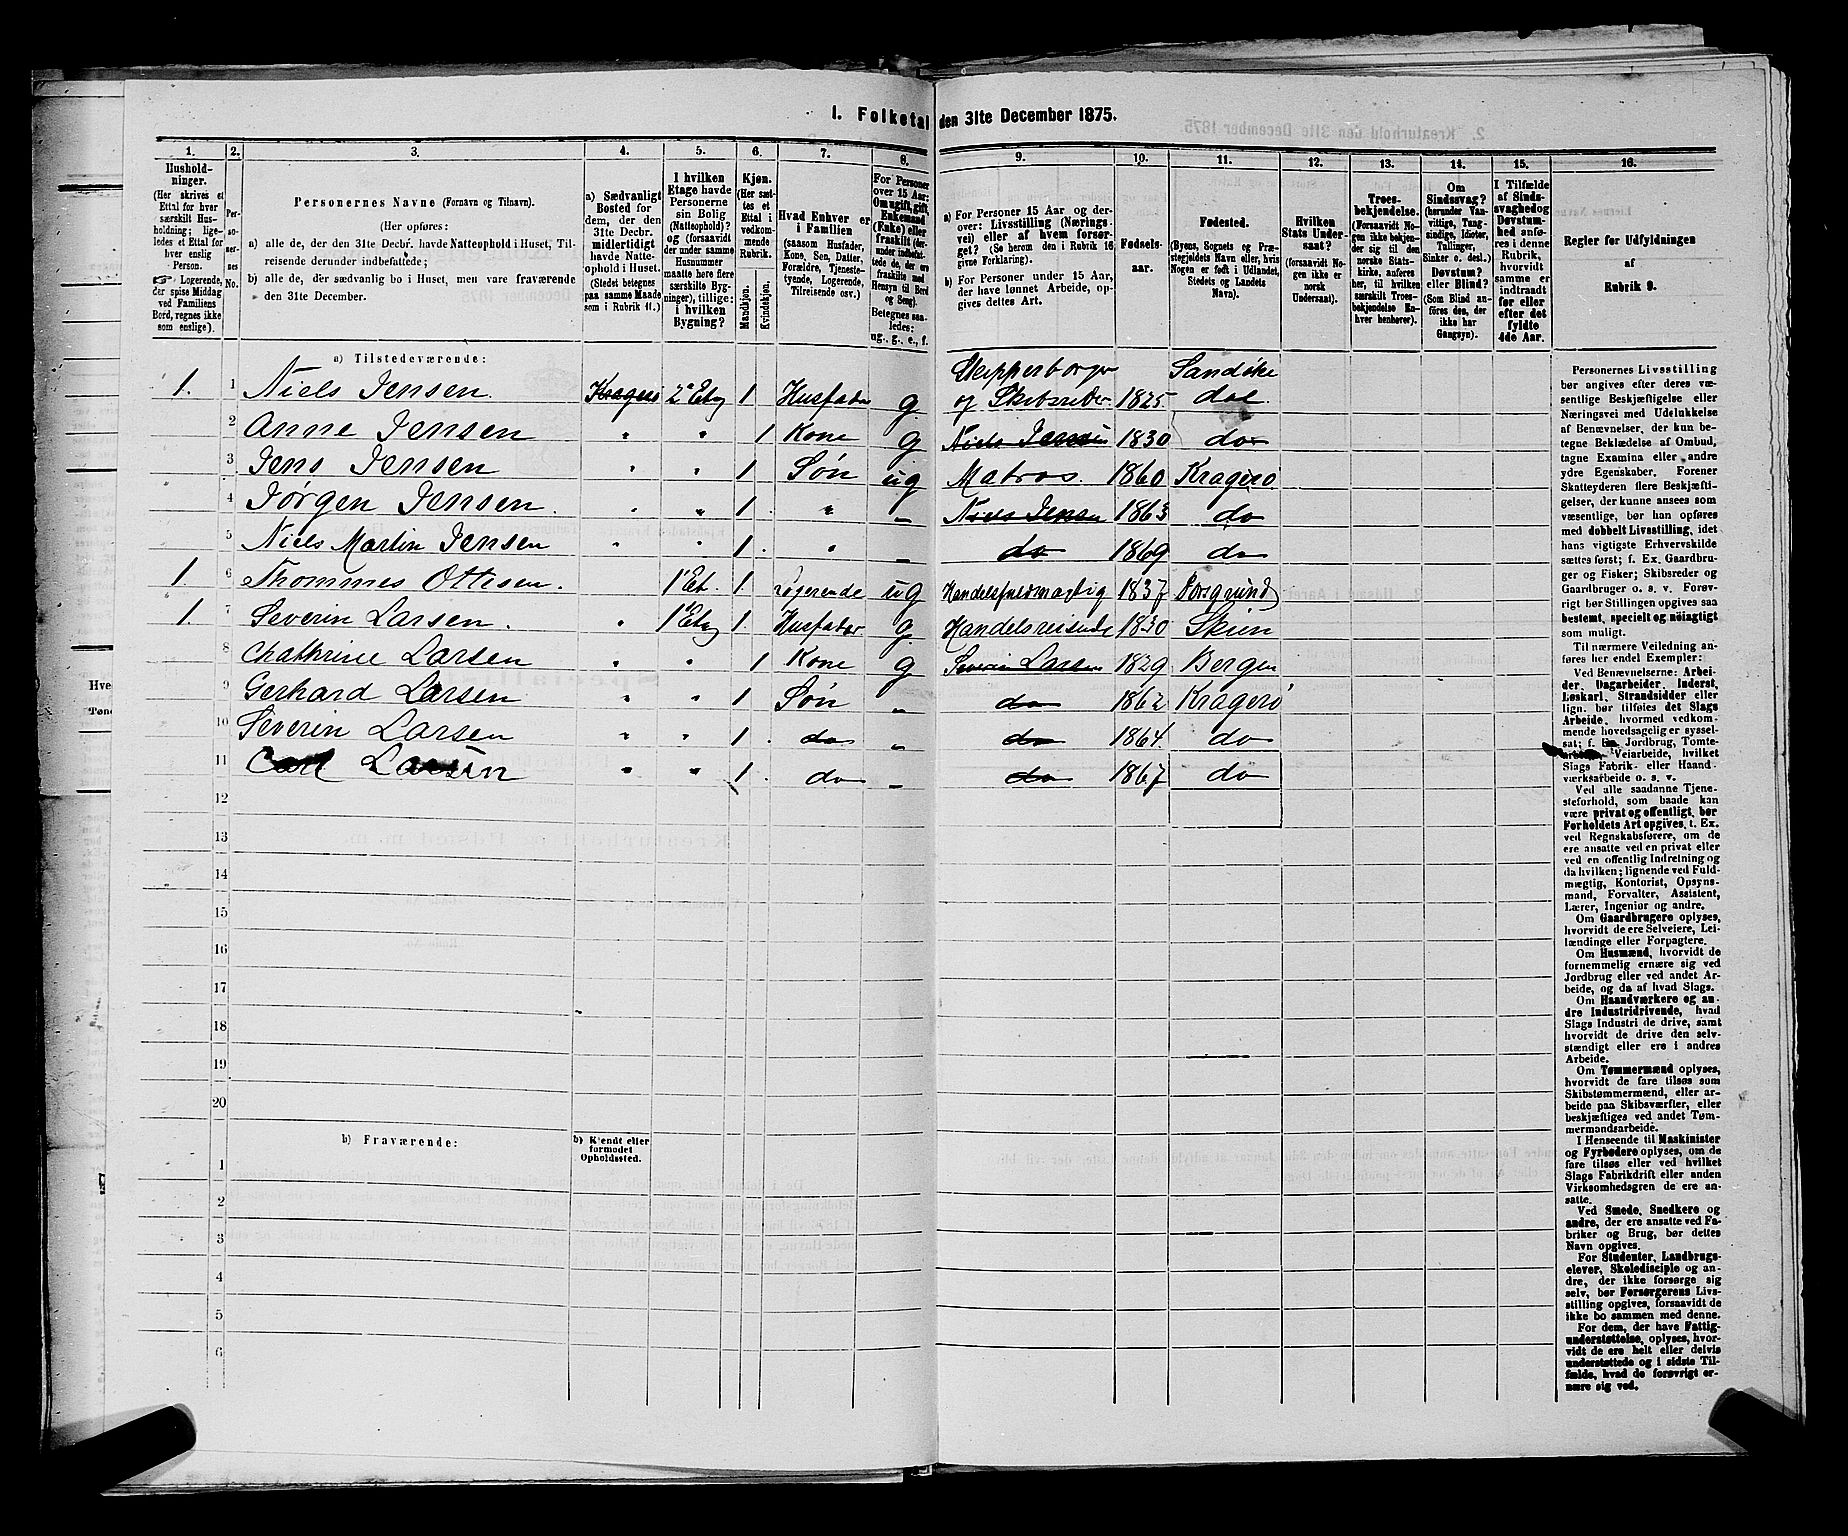 I. Folketal den 31te December 1875.
1. 2. 3. 4. 5. 6. 7. 8. 9. 10. 11. 12. 13. 14. 15. 16.
Hushold-
ninger.
(Her skrives et
Ettal for hver
særskilt Hus-
holdning; lige-
ledes et Ettal for
hver enslig
Person.
Logerende,
der spise Middag
ved Familiens
Bord, regnes ikke
som enslige).
Per-
so-
ner-
nes
No.
Personernes Navne (Fornavn og Tilnavn).
(Her opføres:
a) alle de, der den 31te Decbr. havde Natteophold i Huset; Til-
reisende derunder indbefattede;
b) alle de, der sædvanlig bo i Huset, men vare fraværende
den 31te December.
a) Sædvanligt
Bosted for
dem, der den
31te Decbr.
midlertidigt
havde Natte-
ophold i Huset.
(Stedet betegnes
paa samme Maade
som i Rubrik 11.)
I hvilken
Etage havde
Personerne
sin Bolig
(Natteophold)?
og (forsaavidt
der under samme
Husnummer
maatte høre flere
særskilte Byg-
ninger), tillige:
i hvilken
Bygning?
Kjøn.
(Her sæt-
tes et
Ettal i
vedkom-
mende
Rubrik.
Mandkjøn.
Kvindekjøn.
Hvad Enhver er
i Familien
(saasom Husfader,
Kone, Søn, Datter,
Forældre, Tjeneste-
tyende, Logerende,
Tilreisende osv.)
For Personer
over 15 Aar:
Om ugift, gift,
Enkemand
(Enke) eller
fraskilt
Hensyn til Bord
og Seng).
Betegnes saa-
ledes:
ug., g., e., f.
a) For Personer 15 Aar og der-
over: Livsstilling (Nærings-
vei) eller af hvem forsør-
get? (Se herom den i Rubrik 16
givne Forklaring).
b) For Personer under 15 Aar,
der have lønnet Arbeide, op-
gives dettes Art.
Fødsels-
aar.
Fødested.
(Byens, Sognets og Præ-
stegjeldets Navn, hvis
Nogen er født i Udlandet,
Stedets og Landets
Navn).
Hvilken
Stats Under-
saat?
(forsaavidt No-
gen ikke er
norsk
Undersaat).
Troes-
bekjendelse.
(Forsaavidt No-
gen ikke bekjen-
der sig til den
norske Stats-
kirke, anføres
her, til hvilken
særskilt Troes-
bekjendelse En-
hver henhører).
Om
Sindssvag?
(herunder Van-
vittige, Tung-
sindige, Idioter,
Tullinger,
Sinker o. desl.)
Døvstum?
eller Blind?
(Som Blind an-
føres des, der
ikke har
Gangsyn).
I Tilfælde
af Sinds-
svaghed og
Døvstum-
hed anfø-
res i denne
Rubrik,
hvorvidt
samme er
indtraadt
før eller
efter det
fyldte
4de Aar.
Regler for Udfyldningen
af
Rubrik 9.
a) Tilstedeværende:
1. 1 Niels Jensen. Kragerø 2 Etg 1 Husfader g Skipperborger og Skibsreder. 1825 Sandøkedal.
2 Anne Jensen " " 1 Kone g Niels Jensen 1830 do
3 Jens Jensen " " 1 Søn ug Matros. 1860 Kragerø
4 Jørgen Jensen. " " 1 " – Niels Jensen 1863 do
5 Niels Martin Jensen " " 1 " – do 1869 do
1. 6 Thommes Ottesen. 1 Et. 1. Logerende ug Handelsfuldmægtig 1837 Porsgrund
1. 7 Severin Larsen. " 1 Etg 1. Husfader g Handelsreisende 1830 Skien
8 Chathrine Larsen " " 1 Kone g Severin Larsen 1829 Bergen
9 Gerhard Larsen " " 1 Søn – do 1862 Kragerø
10 Severin Larsen " " 1. do – do 1864. do
11 Carl Larsen " " 1. do – do 1867 do
12
13
14
15
16
17
18
19
20
b) Fraværende:
b) Kjendt eller
formodet
Opholdssted.
1
2
3
4
5
6
Personernes Livsstilling
bør angives efter deres væ-
sentlige Beskjæftigelse eller
Næringsvei med Udelukkelse
af Benævnelser, der kun be-
tegne Beklædelse af Ombud,
tagne Examina eller andre
ydre Egenskaber. Forener
Skatteyderen flere Beskjæfti-
gelser, der kunne ansees som
væsentlige, bør han opføres
med dobbelt Livsstilling, idet
hans vigtigste Erhvervskilde
sættes først; f. Ex. Gaardbru-
ger og Fisker; Skibsreder og
Gaardbruger o. s. v. Forøv-
rigt bør Stillingen opgives saa
bestemt, specielt og nøiagtigt
som muligt.
Til nærmere Veiledning an-
føres her endel Exempler:
Ved Benævnelserne: Arbei-
der, Dagarbeider, Inderst,
Løskarl, Strandsidder eller
lign. bør tilføies det Slags
Arbeide, hvormed vedkom-
mende hovedsagelig er syssel-
sat; f. Ex. Jordbrug, Tomte-
arbeide, Veiarbeide, hvilket
Slags Fabrik- eller Haand-
værksarbeide o. s. v.
Ved alle saadanne Tjene-
steforhold, som baade kan
være privat og offentligt, bør
Forholdets Art opgives, f. Ex.
ved Regnskabsførere, om de
ere ansatte ved en privat eller
ved en offentlig Indretning og
da hvilken; lignende ved Fuld-
mægtig, Kontorist, Opsyns-
mand, Forvalter, Assistent,
Lærer, Ingeniør og andre.
Om Gaardbrugere oplyses,
hvorvidt de ere Selveiere, Lei-
lændinge eller Forpagtere.
Om Husmænd, hvorvidt de
fornemmelig ernære sig ved
Jordbrug eller ved andet Ar-
beide, og da af hvad Slags.
Om Haandværkere og an-
dre Industridrivende, hvad
Slags Industri de drive, samt
hvorvidt de drive den selv-
stændigt eller ere i andres
Arbeide.
Om Tømmermænd oplyses,
hvorvidt de fare tilsøs som
Skibstømmermænd, eller ar-
beide paa Skibsværfter, eller
beskjæftiges ved andet Tøm-
mermandsarbeide.
I Henseende til Maskinister
og Fyrbødere oplyses, om de
fare tilsøs eller ved hvilket
Slags Fabrikdrift eller anden
Virksomhedsgren de ere an-
satte.
Ved Smede, Snedkere og
andre, der ere ansatte ved Fa-
briker og Brug, bør dettes
Navn opgives.
For Studenter, Landbrugs-
elever, Skoledisciple og an-
dre, der ikke forsørge sig
selv, bør Forsørgerens Livs-
stilling opgives, forsaavidt de
ikke bo sammen med denne.
For dem, der have Fattig-
understøttelse, oplyses, hvor-
vidt de ere helt eller delvis
understøttede og i sidste Til-
fælde, hvad de forøvrigt er-
nære sig ved.